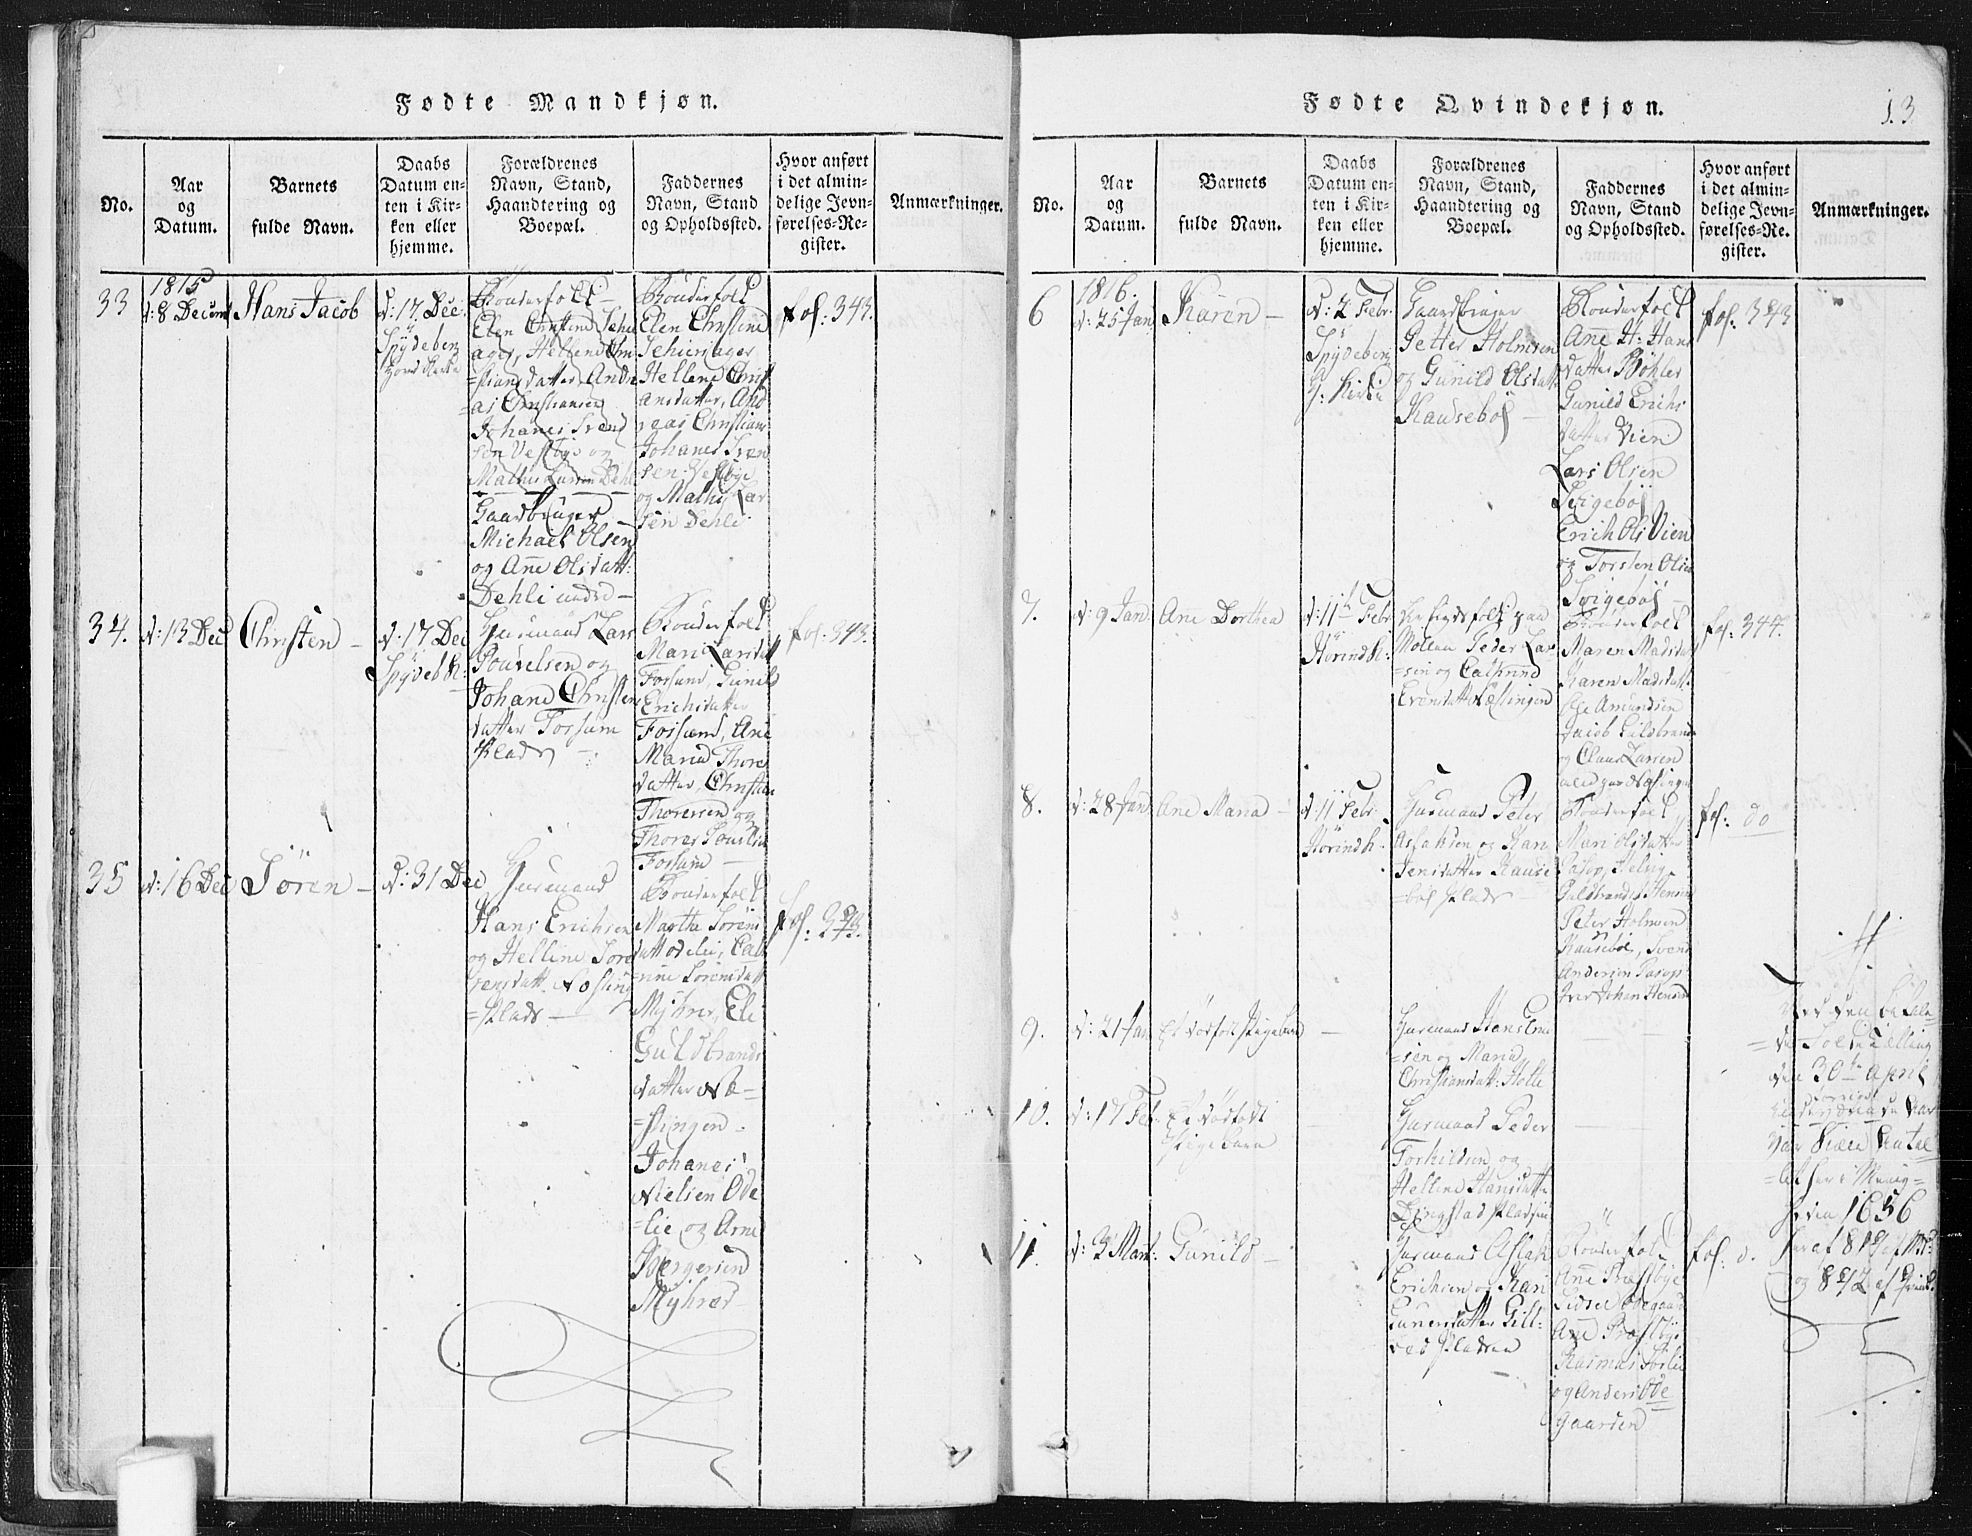 Fødte Mandkjøn.
No.
Aar
og
Datum.
Barnets
fulde Navn.
Daabs
Datum en-
ten i Kir-
ken eller
hjemme.
Forældrenes
Navn, Stand,
Haandtering og
Boepæl.
Faddernes
Navn, Stand
og Opholdssted.
Hvor anført
i det almin-
delige Jevn-
førelses-Re-
gister.
Anmærkninger.
33
1815
d: 8 Decem
Hans Jacob
d: 17. Dec.
Spÿdeberg
Bonderfolk
Elen Christine Schi
ager, Hellene Chri
=stiansdatter, Andre
=as Christiansen
Johanes Svend
sen Vestbÿe og
Mathis Larsen Dehli
Gaardbruger
Michael Olsen
og Ane Olsdatt:
Dehli
Bonderfolk
Elen Christine
Schieuager
Hellene Christi
ansdatter, And
reas Christians
Johanes Sven
sen Vestbÿe
og Mathis Lar
sen Dehli
fol: 343.
34.
d: 13 Dec
Christen
d: 17. Dec
Spÿdeb K:
Huusmand Lars
Poulsen og
Johane Christens
datter Fossum
Plads
Bonderfolk
Mari Larsdatt
Fossum, Gunild
Erichsdatter
Fossum, Ane
Maria Thores
datter, Christian
Thoresen og
Thores Poulsen
Fossum
fol: 343.
35
d: 16 Dec
Sören
d: 31 Dec
Huusmand
Hans Erichsen
og Hellene Sore
rensdatt. Nosling
=Plads
Bonderfolk
Marthe Sörens
datt Ødelie, Cath
=rine Sörensdatt
Mÿhrer, Eli
Guldbrands
datter Næ=
=slingen
Johanes
Nielsen Øde
=lie og Arne
Børgersen
Mÿhrer
fol: 343.
Fødte Qvindekjøn.
13
No.
Aar
og
Datum.
Barnets
fulde Navn.
Daabs
Datum en-
ten i Kir-
ken eller
hjemme.
Forældrenes
Navn, Stand,
Haandtering og
Boepæl.
Faddernes
Navn, Stand
og Opholdssted.
Hvor anført
i det almin-
delige Jevn-
førelses-Re-
gister.
Anmærkninger.
6
1816.
d: 25 Jan
Karen
d: 2 Febr
Spÿdeberg
H: Kirke
Gaardbruger
Petter Holmsen
og Gunild Olsdatt
Kausebøl
Bonderfolk
Ane H: Hans
datter Bøhler
Gunild Erichs
datter Vien
Lars Olsen
Svigebøl
Erich Ols Vien
og Torsten Olsen
Svigebøl
fol: 343
7.
d: 9 Jan
Ane Dorthea
d: 11te Febr
Hörind K:
Peder Lar
=sen og Cathrine
Evensdatt Næslingen
Bonderfolk
Maren Madsdatt
Karen Madsdatt
Ole Amundsen
Jacob Gulbrands
og Claus Larsen
fol: 344.
8.
d: 28 Jan
Ane Maria
d: 11 Febr.
Hörind K.
Huusmand Peter
Aslaksen og Kari
Jensdatter Kause
=bøl Plads
Bonderfolk
Mari Olsdatter
Guldbrandsd Hensen
Peter Holmsen
Kausebøl, Svend
Andersen
Iver Johan Hensen
fol: do
9.
d: 21 Jan
Et dødfødt Pigebarn
Huusmand Hans Em
=sen og Maria
Christiansdatt: Holte
10.
d: 17 Feb
Et dødfødt
Pigebarn
Huusmand Peder
Torkildsen og
Hellene Hansdatt
Dingstad Pladsen
11.
d: 3 Mart:
Gunild
Huusmand Aslak
Erichsen og Kari
Gunersdatter Gill-
ved Pladsen
Bonderfolk
Ane Præstbÿe
Sidsel Ødegaard
Ane Præstbÿe
Rasmus
og Anders Øde
gaarden
fol: d.
Ved den befale=
=de Folketælling
den 30te April
var Siæle Antal
=let her i Menig=
heden 1656
heraf 814 af M:
og 842 af Qvink.